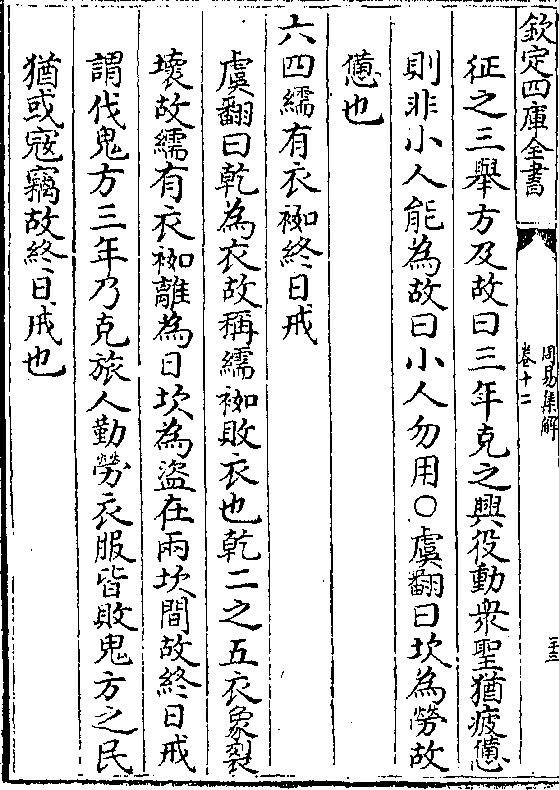 欽定四庫全書
周易集解
卷十二
三十三
征之三舉方及故曰三年克之興役動衆聖猶疲憊
則非小人能為故曰小人勿用○虞翻曰坎為勞故
憊也
六四繻有衣袽終日戒
虞翻曰乾為衣故稱繻袽敗衣也乾二之五衣象裂
壞故繻有衣袽離為日坎為盜在兩坎間故終日戒
謂伐鬼方三年乃克旅人勤勞衣服皆敗鬼方之民
猶或寇竊故終日戒也